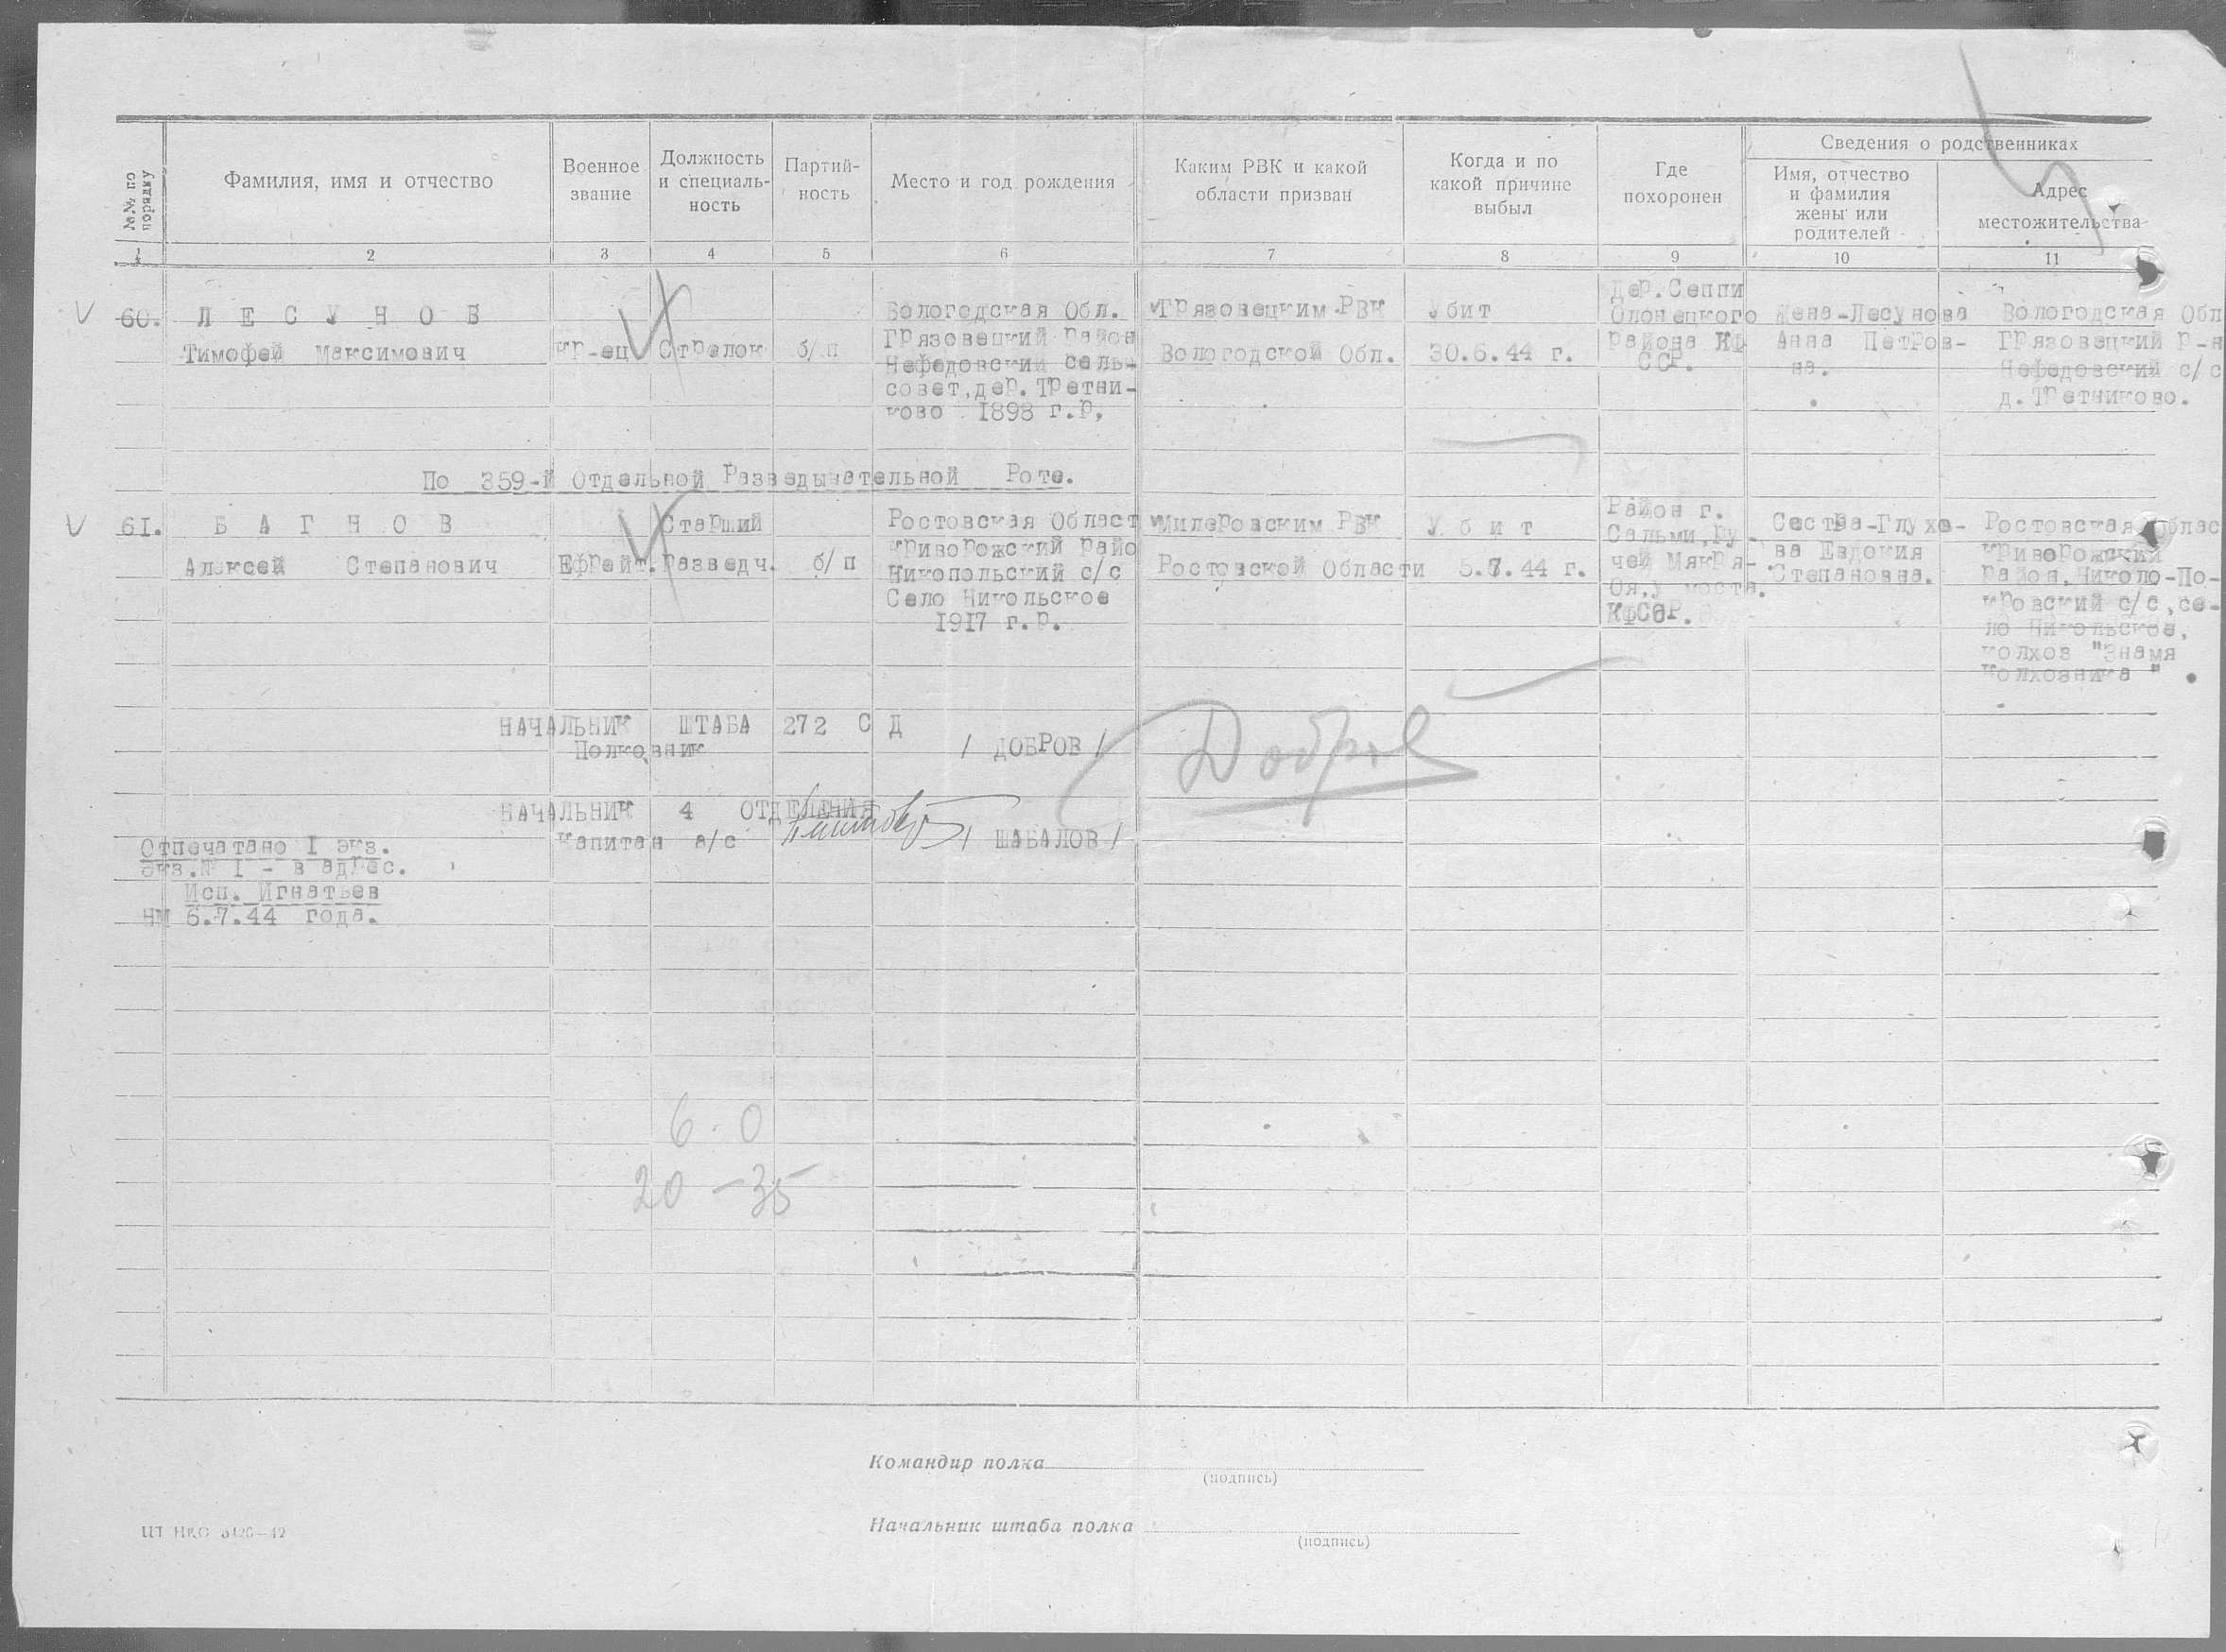 №№ по порядку
Фамилия, имя и отчество
Военное звание
Должность и специаль-ность
Партий-ность
Место и год рождения
Каким РВК и какой области призван
Когда и по какой причине выбыл
Где похоронен
Сведения о родственниках
Имя, отчество и фамилия жены или родителей
Адрес местожительства
1 2 3 4 5 6 7 8 9 10 11
60.
Л Е С У Н О В
Тимофей Максимович
кр-ец
Стрелок
б/п
Вологодская Обл.
Грязовецкий район
Нефедовский сель-
совет, дер. Третни-
ково 1898 г.р.
Грязовецким РВК
Вологодской Обл.
Убит
30.6.44 г.
Дер. Сеппи
Олонецкого
района КФ
ССР.
Жена-Лесунова
Анна Петров-
на.
Вологодская Обл
Грязовецкий р-н
Нефедовский с/с
д. Третниково.
По 359-й Отдельной Разведывательной Роте.
61.
Б А Г Н О В
Алексей Степанович
Ефрейт.
Старший
Разведч.
б/п
Ростовская Област
Криворожский райо
Никопольский с/с
Село Никольское
1917 г.р.
Милеровским РВК
Ростовской Области
У б и т
5.7.44 г.
Район г.
Сальми, ру-
чей Мякря-
Оя, у моста.
КФССР.
Сестра-Глухо-
ва Евдокия
Степановна.
Ростовская Облас
Криворожский
район, Николо-По-
кровский с/с, се-
ло Никольское,
колхоз "Знамя
Колхозника"
НАЧАЛЬНИК ШТАБА 272 С Д
Полковник
/ ДОБРОВ /
Добров
НАЧАЛЬНИК 4 ОТДЕЛЕНИЯ
Капитан а/с
/ ШАБАЛОВ /
Отпечатано I экз.
Экз.№ I - в адрес.
Исп. Игнатьев
НМ 6.7.44 года.
6-0
20-35
Командир полка
(подпись)
Начальник штаба полка
(подпись)